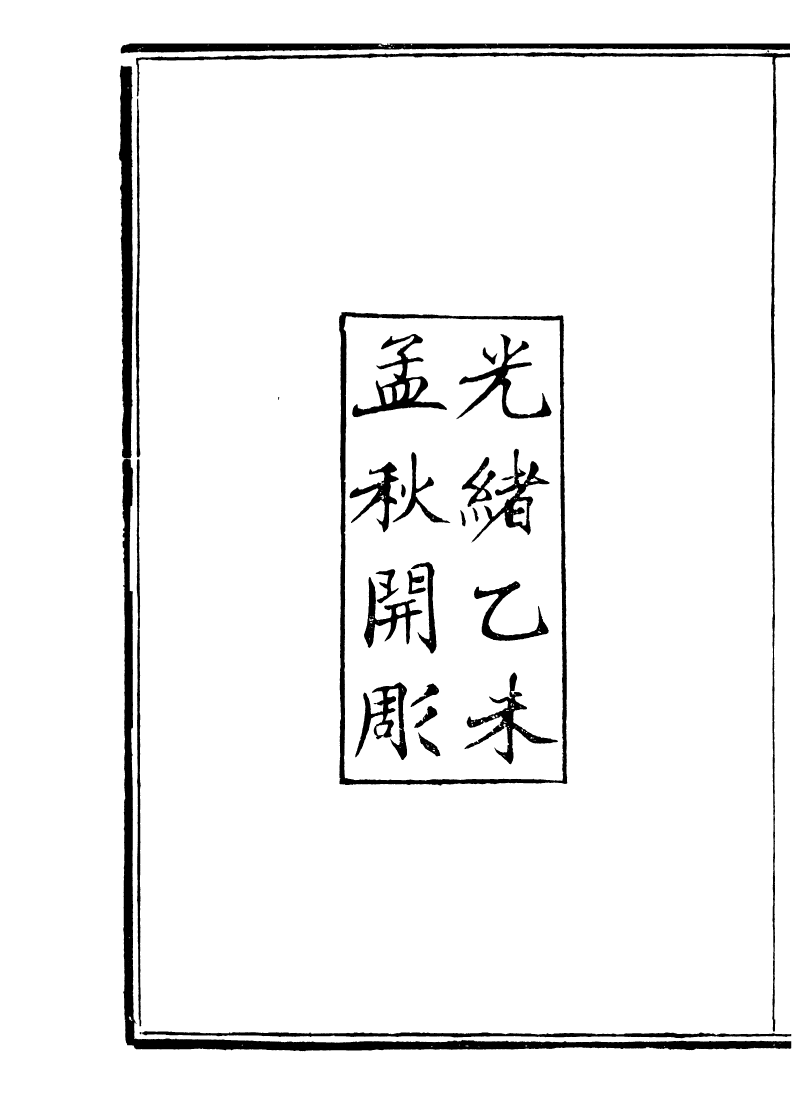 光緒乙未
孟秋開彫